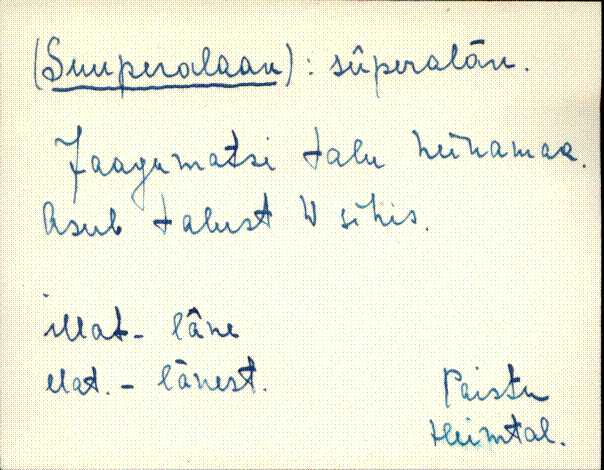 (Suuperalaan): sûperalān.
Jaagumatsi talu heinamaa.
Asub talust W sihis.
illat- lâne
elat.- lānest.
Paistu
Heimtal.